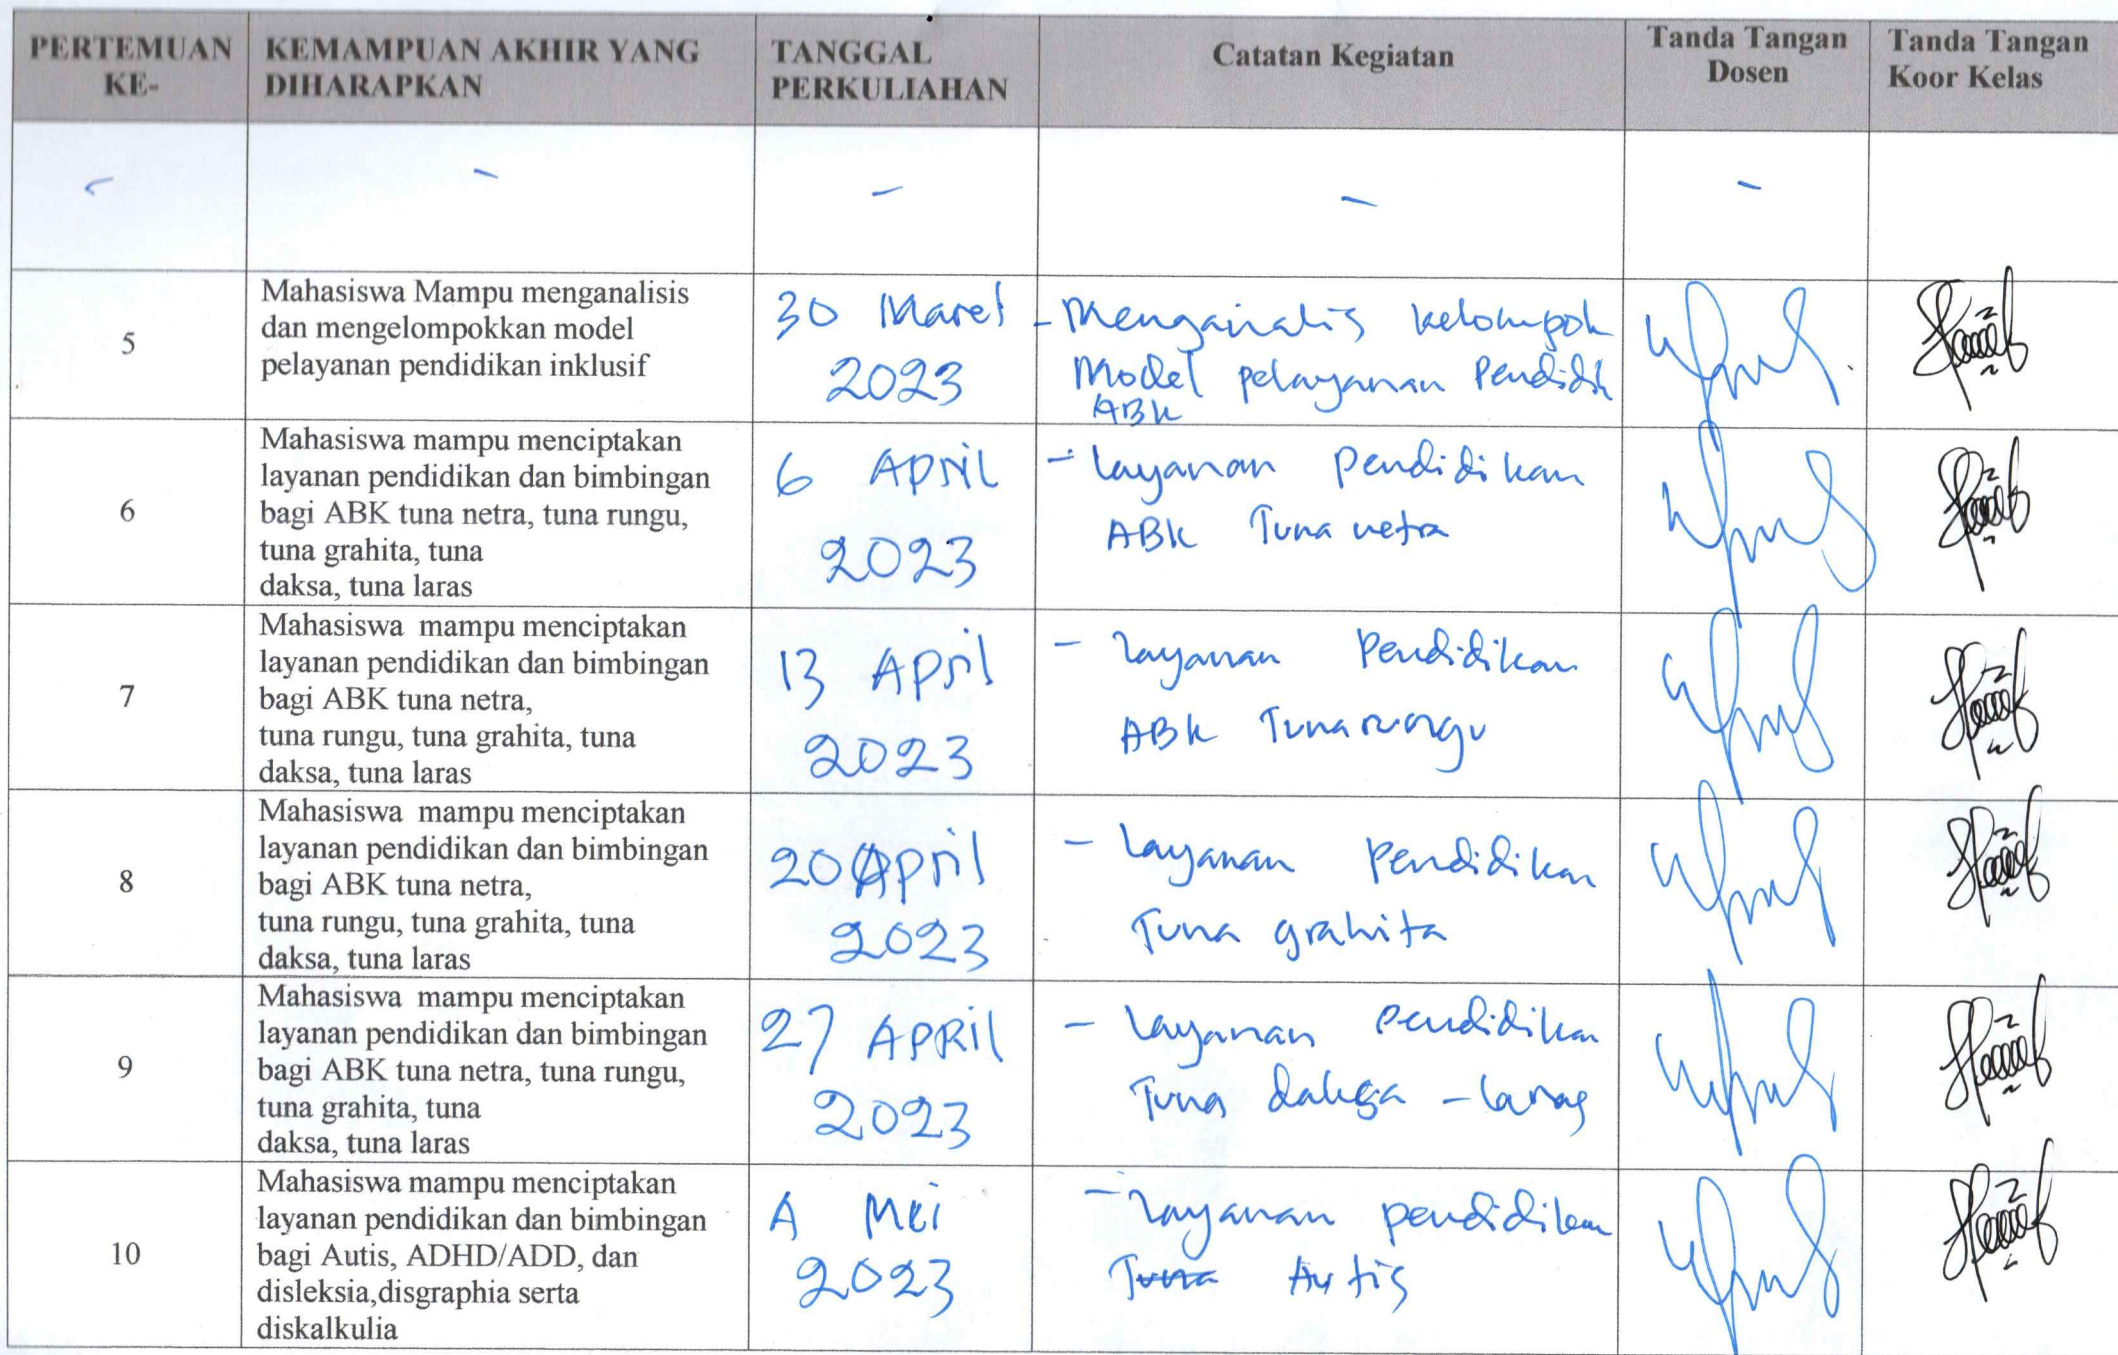 PERTEMUAN KE-
KEMAMPUAN AKHIR YANG DIHARAPKAN
TANGGAL PERKULIAHAN
Catatan Kegiatan
Tanda Tangan Dosen
Tanda Tangan Koor Kelas
- - - - -
5
Mahasiswa Mampu menganalisis
dan mengelompokkan model
pelayanan pendidikan inklusif
30 Maret
2023
- Menganalis kelompok
Model pelayanan Pendidik
ABK
6
Mahasiswa mampu menciptakan
layanan pendidikan dan bimbingan
bagi ABK tuna netra, tuna rungu,
tuna grahita, tuna
daksa, tuna laras
6 April
2023
- Layanan pendidikan
ABK Tuna netra
7
Mahasiswa mampu menciptakan
layanan pendidikan dan bimbingan
bagi ABK tuna netra,
tuna rungu, tuna grahita, tuna
daksa, tuna laras
13 April
2023
- Layanan Pendidikan
ABK Tuna rungu
8
Mahasiswa mampu menciptakan
layanan pendidikan dan bimbingan
bagi ABK tuna netra,
tuna rungu, tuna grahita, tuna
daksa, tuna laras
20 April
2023
- Layanan Pendidikan
Tuna grahita
9
Mahasiswa mampu menciptakan
layanan pendidikan dan bimbingan
bagi ABK tuna netra, tuna rungu,
tuna grahita, tuna
daksa, tuna laras
27 APRil
2023
- Layanan pendidikan
Tuna daksa - laras
10
Mahasiswa mampu menciptakan
layanan pendidikan dan bimbingan
bagi Autis, ADHD/ADD, dan
disleksia,disgraphia serta
diskalkulia
4 Mei
2023
- Layanan pendidikan
Tuna Autis